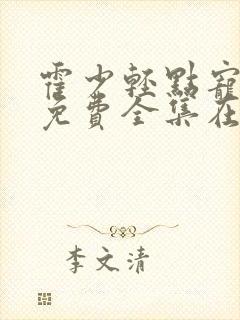 霍少輕點寵
免費全集在
李文清